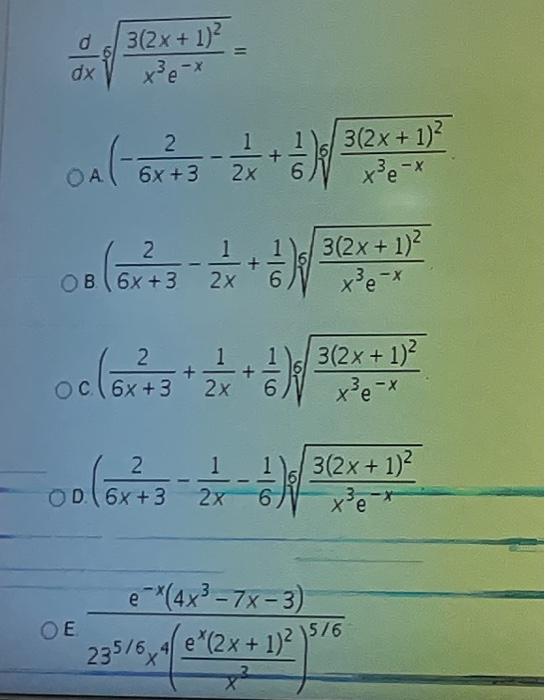 d/dx ⁶√(3(2x + 1)²/(x³e⁻ˣ)) =
A. (−2/(6x + 3) − 1/(2x) + 1/6) ⁶√(3(2x + 1)²/(x³e⁻ˣ))
B. (2/(6x + 3) − 1/(2x) + 1/6) ⁶√(3(2x + 1)²/(x³e⁻ˣ))
C. (2/(6x + 3) + 1/(2x) + 1/6) ⁶√(3(2x + 1)²/(x³e⁻ˣ))
D. (2/(6x + 3) − 1/(2x) − 1/6) ⁶√(3(2x + 1)²/(x³e⁻ˣ))
E. e⁻ˣ(4x³ − 7x − 3)/(23^(5/6)x⁴(eˣ(2x + 1)²/x³)^(5/6))